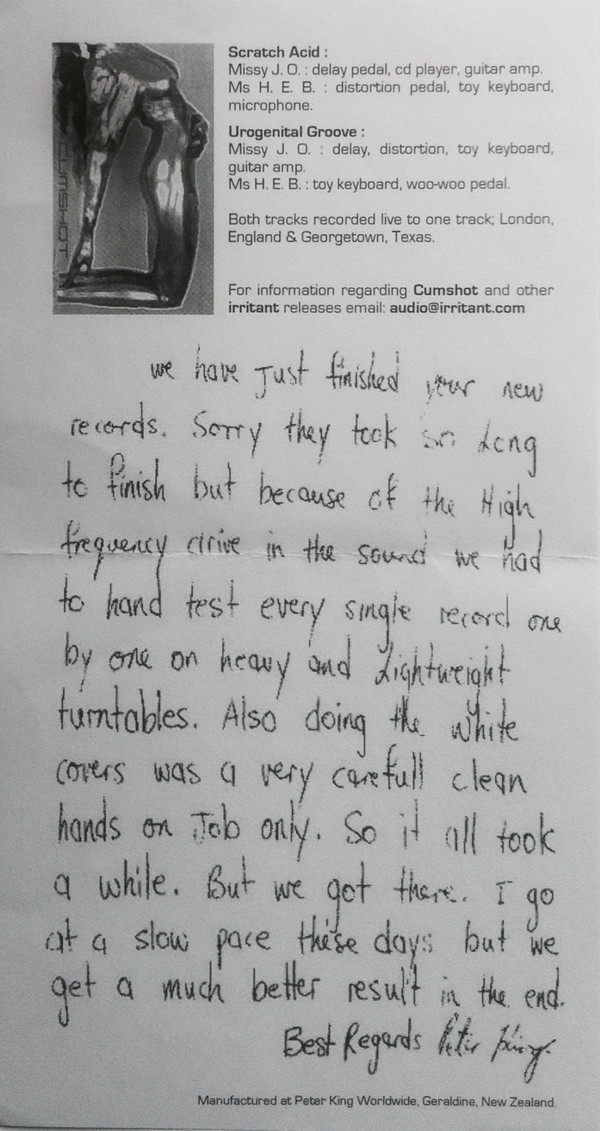 CUMSHOT
Scratch Acid :
Missy J. O. : delay pedal, cd player, guitar amp.
Ms H. E. B. : distortion pedal, toy keyboard,
microphone.
Urogenital Groove :
Missy J. O. : delay, distortion, toy keyboard,
guitar amp.
Ms H. E. B. : toy keyboard, woo-woo pedal.
Both tracks recorded live to one track; London,
England & Georgetown, Texas.
For information regarding Cumshot and other
irritant releases email: audio@irritant.com
we have just finished your new
records. Sorry they took so Long
to finish but because of the High
frequency drive in the sound we had
to hand test every single record one
by one on heavy and Lightweight
turntables. Also doing the white
covers was a very carefull clean
hands on Job only. So it all took
a while. But we got there. I go
at a slow pace these days but we
get a much better result in the end.
Best Regards Peter King.
Manufactured at Peter King Worldwide, Geraldine, New Zealand.